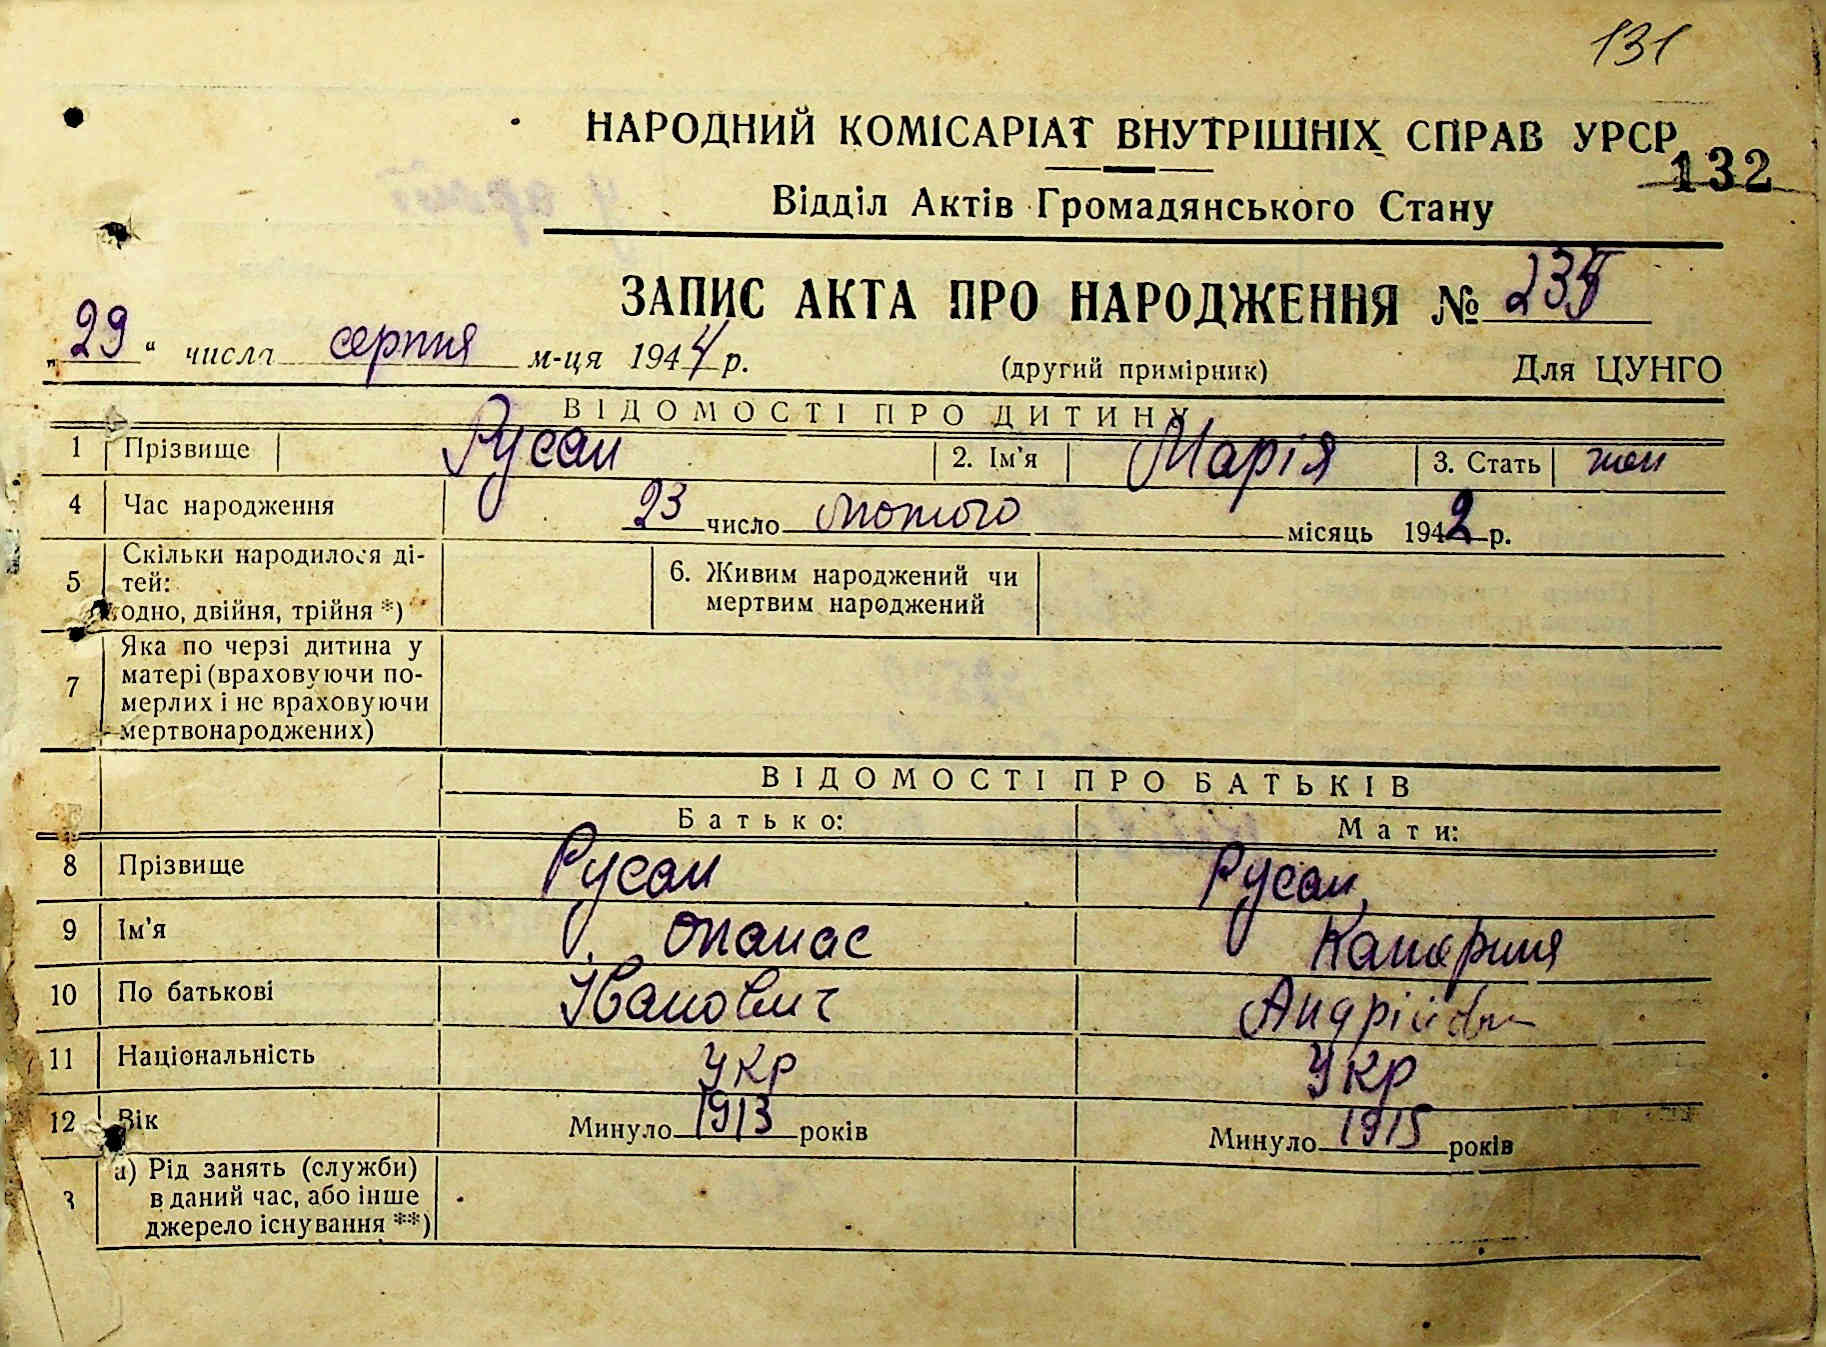 131
НАРОДНИЙ КОМІСАРІАТ ВНУТРІШНІХ СПРАВ УРСР
132
Відділ Актів Громадянського Стану
ЗАПИС АКТА ПРО НАРОДЖЕННЯ №
„29“ числа серпня м-ця 1944 р. (другий примірник) Для ЦУНГО
ВІДОМОСТІ ПРО ДИТИНУ
1 Прізвище Русан 2. Ім'я Марія 3. Стать жен
4 Час народження 23 число лютого місяць 1942 р.
5 Скільки народилося ді-
тей:
одно, двійня, трійня *)
6. Живим народжений чи
мертвим народжений
7 Яка по черзі дитина у
матері (враховуючи по-
мерлих і не враховуючи
мертвонароджених)
ВІДОМОСТІ ПРО БАТЬКІВ
Батько: Мати:
8 Прізвище Русан Русан
9 Ім'я Опанас Катерина
10 По батькові Іванович Андріївн
11 Національність Укр Укр
12 Вік Минуло 1913 років Минуло 1915 років
3 а) Рід занять (служби)
в даний час, або інше
джерело існування **)